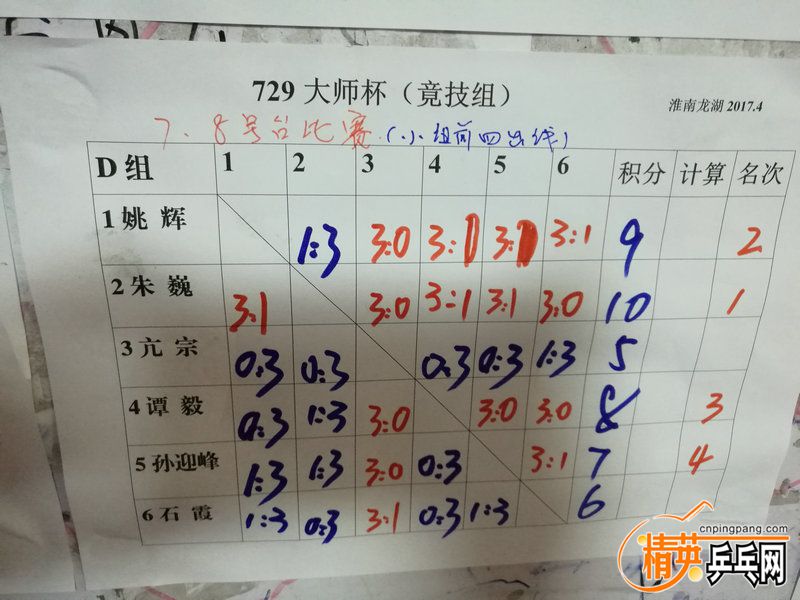 729 大师杯（竞技组）
淮南龙湖 2017.4
7、8号台比赛（小组前四出线）
D 组 1 2 3 4 5 6 积分 计算 名次
1 姚 辉 1:3 3:0 3:1 3:1 3:1 9 2
2 朱 巍 3:1 3:0 3:1 3:1 3:0 10 1
3 亢 宗 0:3 0:3 0:3 0:3 1:3 5
4 谭 毅 0:3 1:3 3:0 3:0 3:0 8 3
5 孙迎峰 1:3 1:3 3:0 0:3 3:1 7 4
6 石 霞 1:3 0:3 3:1 0:3 1:3 6
cnpingpang.com
精英乒乓网